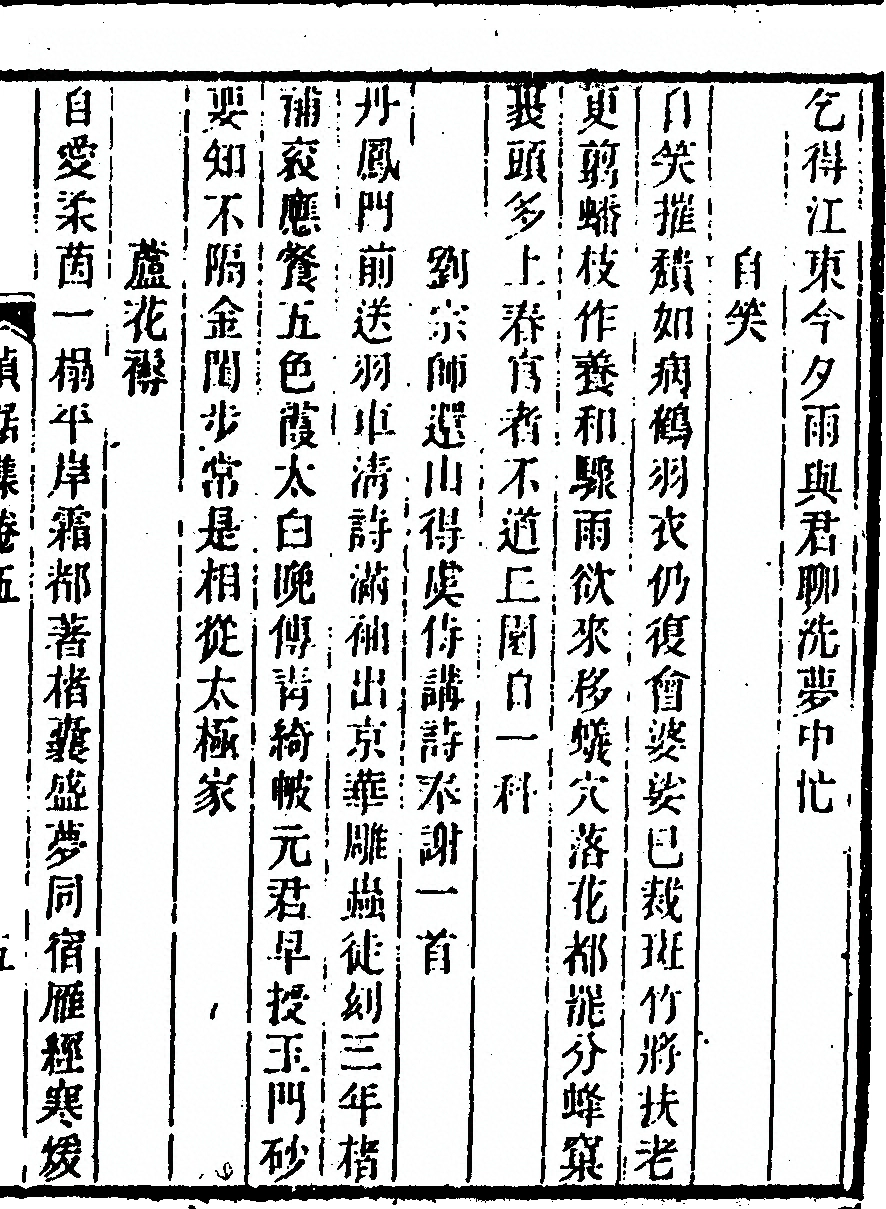 乞得江東今夕雨與君聊洗夢中忙
自笑
自笑摧頹如病鶴羽衣仍復會婆娑已裁斑竹將扶老
更剪蟠枝作養和驟雨欲來移蟻穴落花都罷分蜂窠
裹頭多上春官者不道丘園自一科
劉宗師還山得虞侍講詩來謝一首
丹鳳門前送羽車清詩滿袖出京華雕蟲徒刻三年楮
補衮應餐五色霞太白晚傳青綺帔元君早授玉門砂
要知不隔金閨步常是相從太極家
蘆花褥
自愛柔茵一榻平岸霜都著楮囊盛夢同宿雁經寒煖
貞居集卷五
五